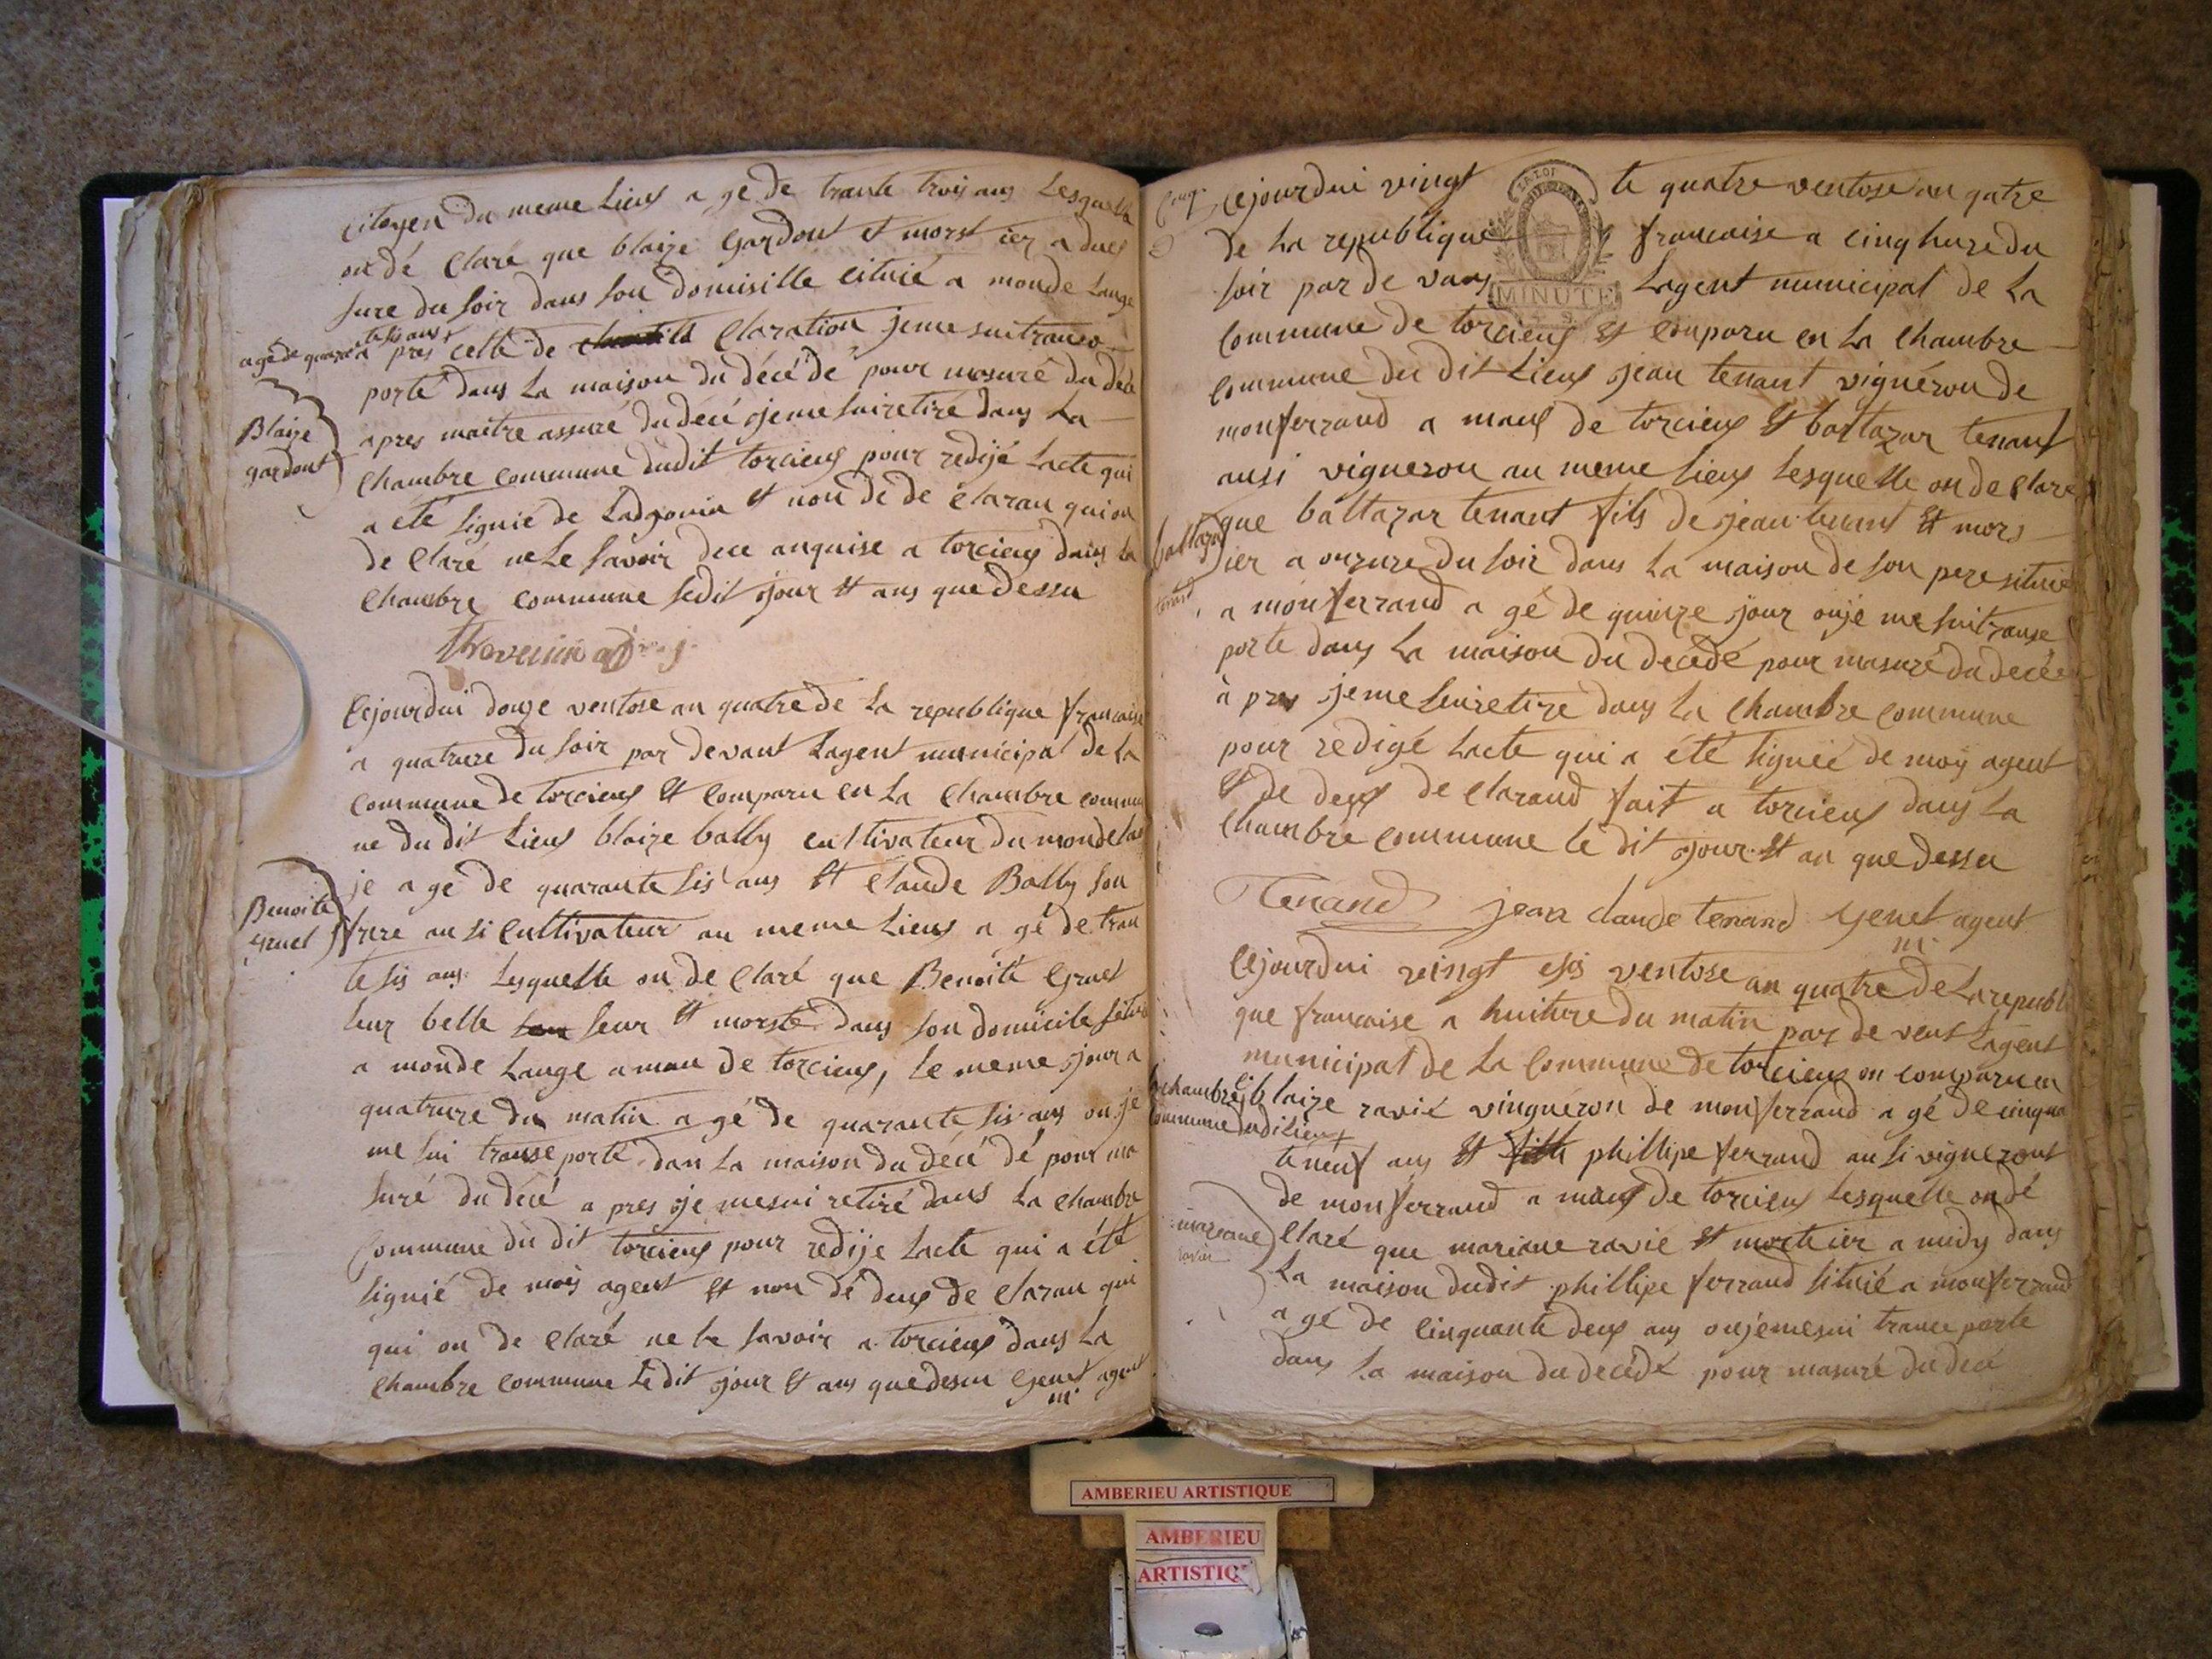 citoyen du meme Lieux a gé de trante trois ans Lesquelle
on dé Claré que blaize Gardout et morst ier a dues
sure du soir dans son domisille cituié a monde Lange
agé de quarante sis ans
a pres cette de Claration jeme sui transo
porté dans La maison du décé dé pour masuré du décé
apres maitre assuré du décé jeme suiretiré dans La
Blaize
gardout
Chambre commune dudit torcieux pour redijé Lacte qui
a été signié de et non de de Claran qui on
de Claré ne Le savoir dece anquise a torcieux dans la
Chambre commune ledit jour et ans que dessu
Cejourdui douze ventose an quatre de La republique francaise
a quatrure du soir par devant Lagent municipal de La
commune de torcieux et comparu en La Chambre commu
ne du dit Lieux blaize bally cultivateur du mondelan
je a gé de quarante sis ans et Claude Bally son
Benoite
gruel
frere ausi Cultivateur au meme Lieux a gé de tran
te sis ans Lesquelle on de Claré que Benoite Gruel
leur belle seur et morste dans son domicile situé
a monde Lange a mau de torcieux, le meme jour a
quatrure du matin a gé de quarante sis ans ou je
me sui transe porté dan La maison du décé dé pour ma
suré du décé a pres je mesui retiré dans La Chambre
Commune du dit torcieux pour redije Lacte qui a été
signié de mois agent et non dé deux de Claran qui
qui on de Claré ne le savoir a torcieux dans La
Chambre commune Le dit jour et ans que desu Genet agent
m
Cejourdui vingt te quatre ventose an qatre
LA LOI
de La republique francaise a cinq hure du
soir par de vans Lagent municipal de La
MINUTE
Commune de torcieux et comparu en La Chambre
Commune du dit Lieux jean tenant vignéron de
monferrand a maux de torcieux et baltazar tenant
ausi vigneron au meme Lieux Lesquelle on de Claré
que baltazar tenant fils de jean tenant et mors
baltazar
tenand
ier a onzure du soir dans La maison de son pere situié
a monferrand a gé de quinze jour ouje me sui transe
porte dans La maison du decédé pour masuré du decé
à pres jeme suiretire dans La Chambre commune
pour redigé Lacte qui a été signié de moy agent
et de deux de Clarand fait a torcieux dans La
Chambre commune le dit jour et an que dessu
Tenand jean claude tenand Genet agent
m
Cejourdui vingt sis ventose an quatre de La republi
que francaise a huiture du matin par de vent Lagent
municipal de La Commune de torcieux on comparu en
la chambre
commune dudi Lieux
blaize ravié vingnéron de monferrand a gé de cinqua
te neuf ans et phillipe ferrand ausi vigneront
de monferrand a maux de torcieux Lesquelle on dé
mariane
ravier
Claré que mariane ravié et morte ier a midy dans
La maison dudit phillipe ferrand situié a monferrand
a gé de Cinquante deux ans oujemesui trance porte
dans La maison du decédé pour masuré du decé
AMBERIEU ARTISTIQUE
AMBERIEU
ARTISTIQ